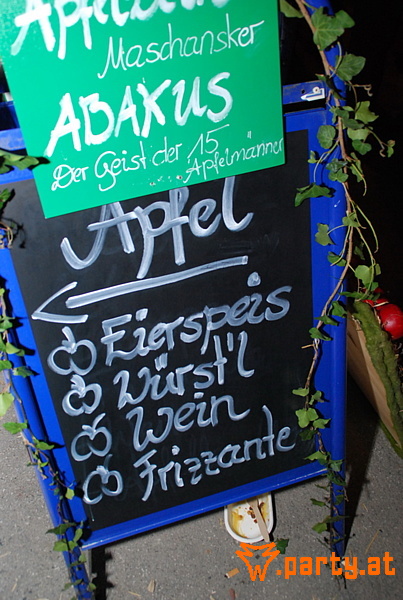 Maschansker
ABAKUS
Der Geist der 15
Apfelmänner
Apfel
Eierspeis
Würst'l
Wein
Frizzante
W.party.at